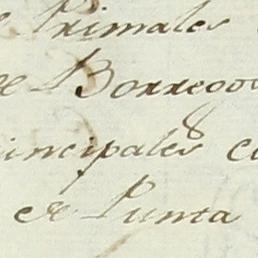 e Primales
de Borregos
incipales co
de Punta